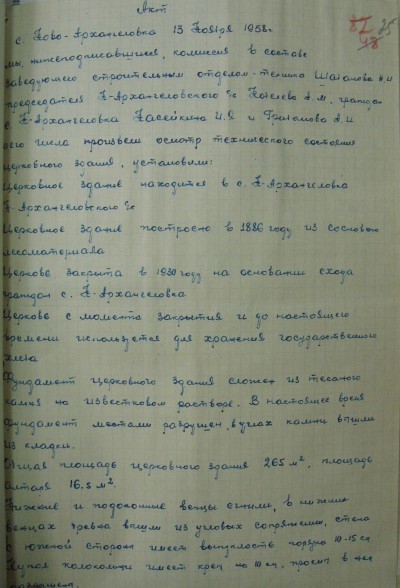 Акт
с. Ново-Архангеловка 13 Ноября 1958г.
мы, нижеподписавшиеся, комиссия в составе
заведующего строительным отделом-техника Шаталова
председателя Н-Архангеловского с/с А.М, граждан
с. Н-Архангеловка и
его числа произвели осмотр технического состояния
церковного здания, установили:
Церковное здание находится в с. Н-Архангеловка
Н-Архангеловского с/с
Церковное здание построено в 1886 году из соснового
лесоматериала
Церковь закрыта в 1930 году на основании схода
граждан с. Н-Архангеловка
Церковь с момента закрытия и до настоящего
времени используется для хранения государственного
хлеба
Фундамент церковного здания сложен из тесаного
камня на известковом растворе. В настоящее время
фундамент местами разрушен, в углах камни вышли
из кладки.
Общая площадь церковного здания 265 м², площадь
алтаря 16.5 м².
Нижние и подоконные венцы сгнили, в нижних
венцах бревна вышли из угловых сопряжений, стена
с южной стороны имеет выпуклость порядка 10-15 см
Купол колокольни имеет крен на 10 см, в нее